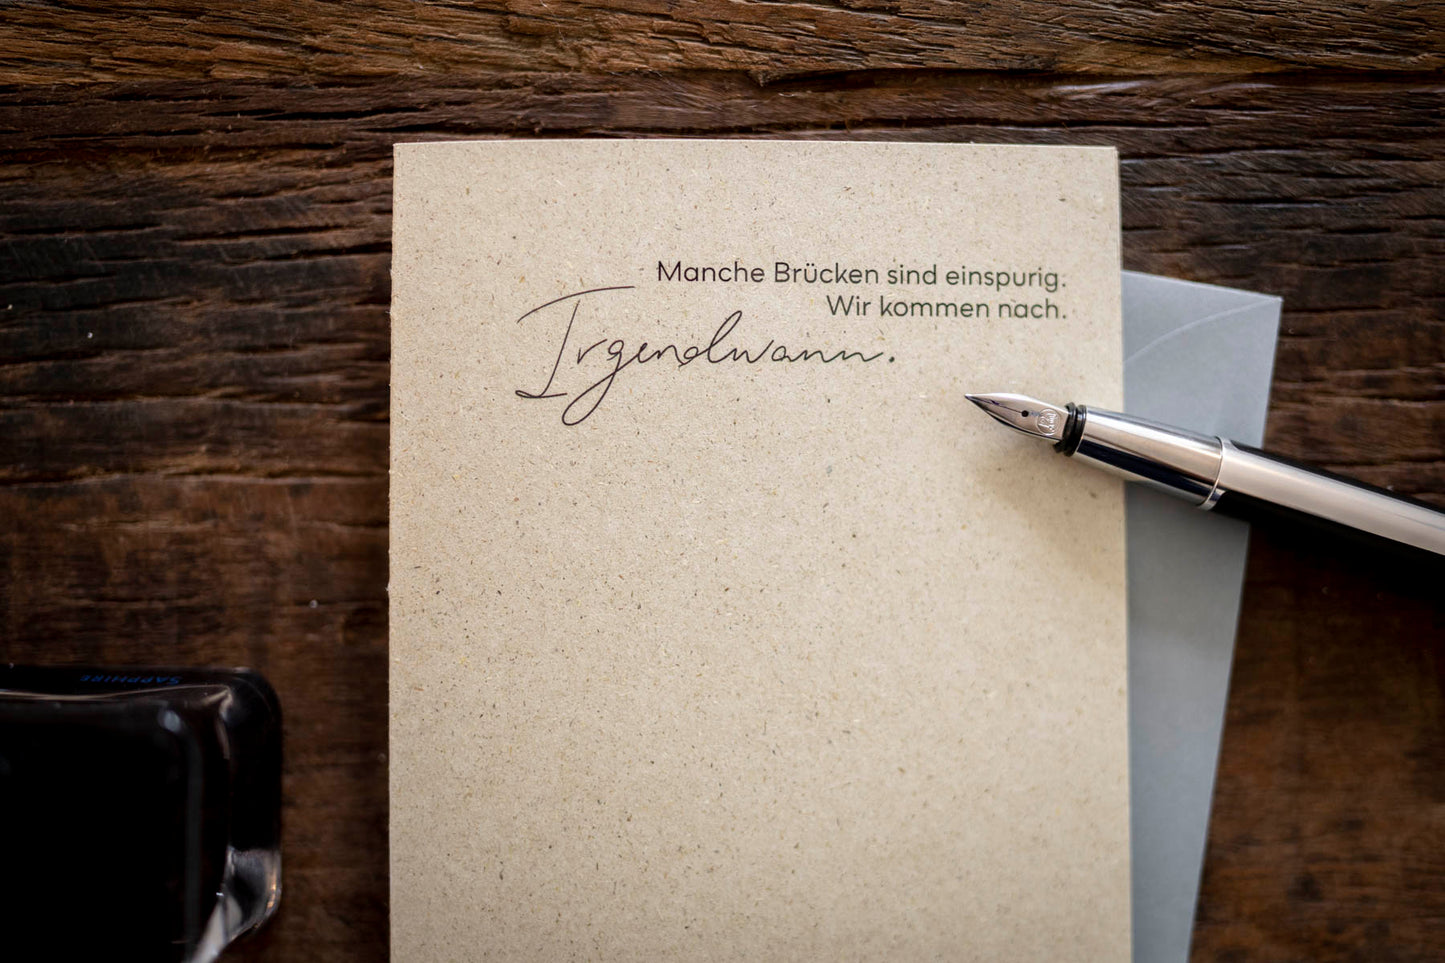 Manche Brücken sind einspurig.
Wir kommen nach.
Irgendwann.
SAPPHIRE